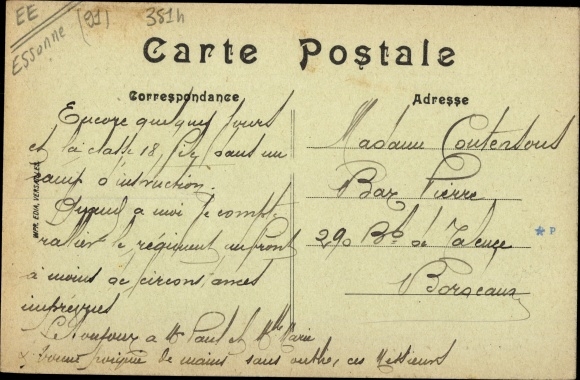 EE
Essonne (91) 351h
Carte Postale
Correspondance
Adresse
Encore quelques jours
et la classe 18, dans un
camp d'instruction.
Quand a moi je compte
rallier le régiment au front
à moins de circonstances
imprévues
Le bonjour a Mr Paul et Mlle Marie
& bonne poignée de mains sans oublier ces Messieurs
IMP. EDIA, VERSAILLES
Madame Coutensous
Bar Pierre
290 Bd de Talence
Bordeaux
* P